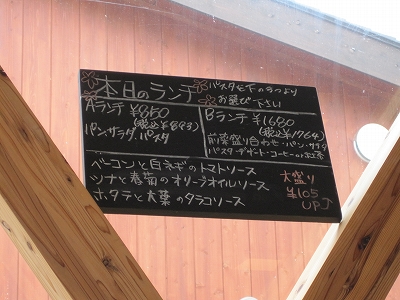 本日のランチ
パスタを下の3つより
お選び下さい
Aランチ ¥850
(税込¥893)
パン、サラダ、パスタ
Bランチ ¥1680
(税込¥1764)
前菜盛り合わせ・パン・サラダ
パスタ・デザート・コーヒーor紅茶
ベーコンと白ネギのトマトソース
ツナと春菊のオリーブオイルソース
ホタテと大葉のタラコソース
大盛り
¥105
UP♪